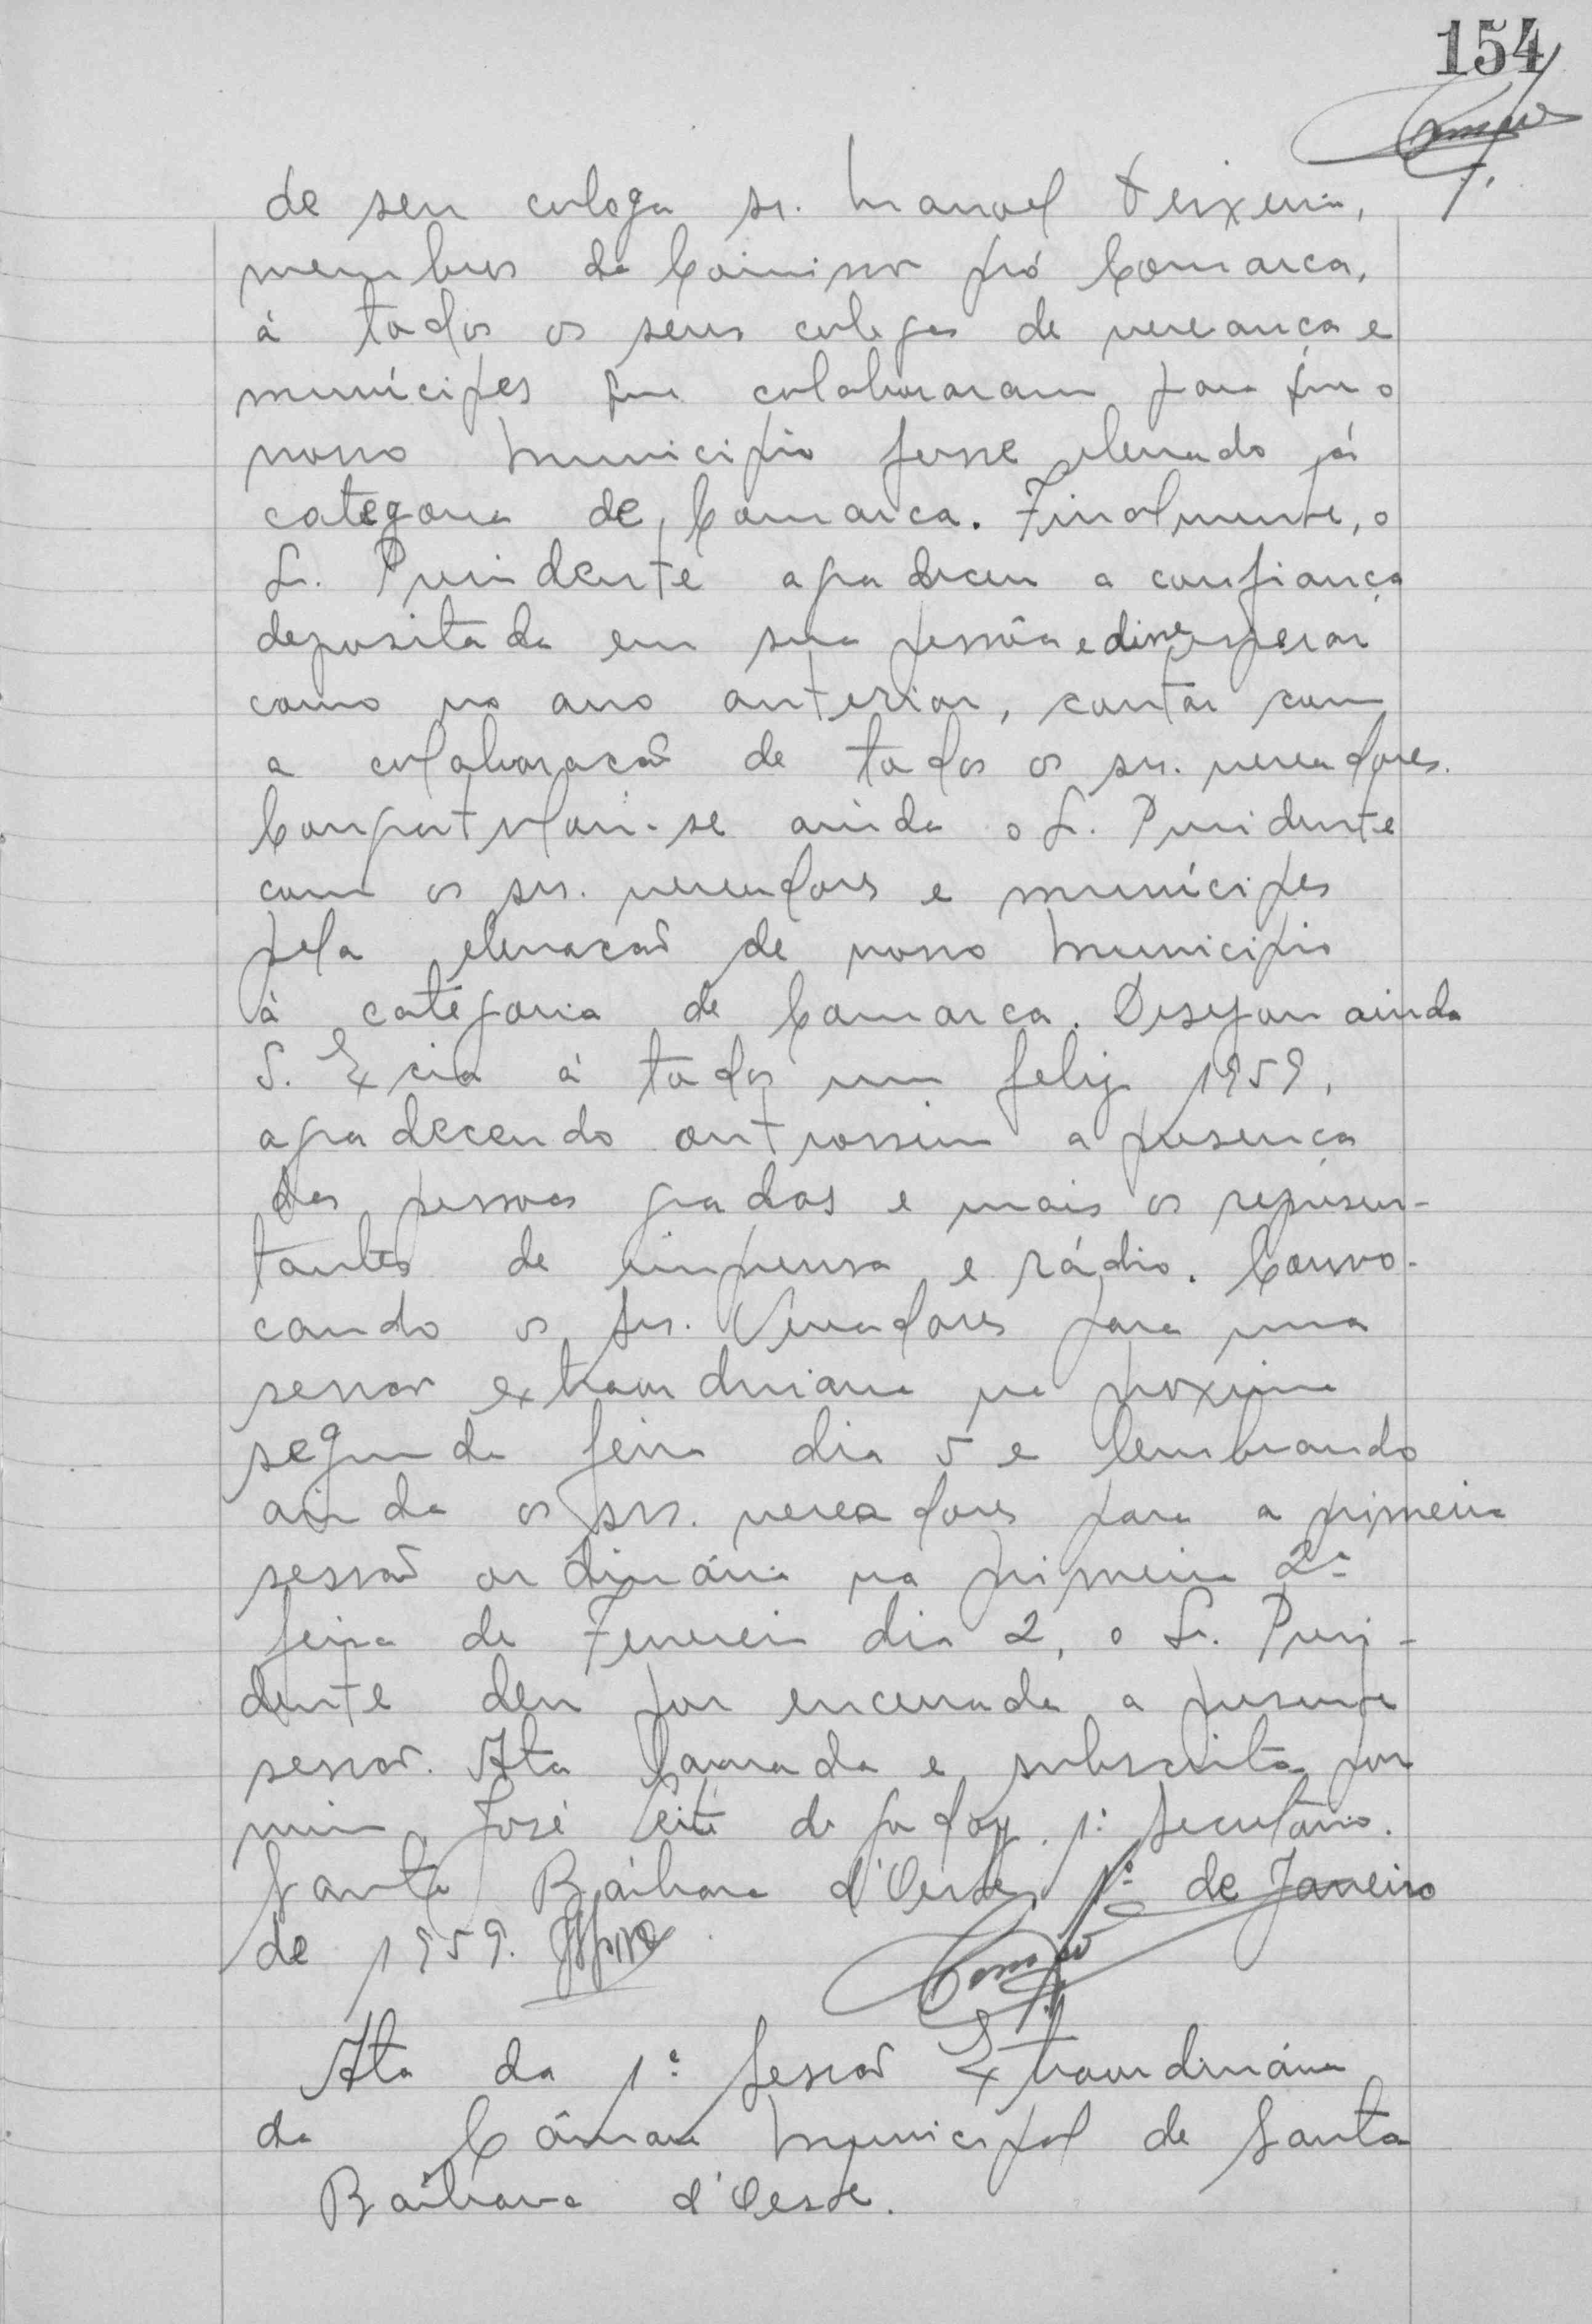 154
de seu colega sr. Manoel Teixeira,
membros da Comissão pró Comarca,
á todos os seus colegas de vereança e
munícipes que colaboraram para que o
nosso Municipio fosse elevado já
categoria de Comarca. Finalmente, o
Sr. Presidente agradeceu a confiança
depositada em sua pessôa e disse esperar
como no ano anterior, contar com
a colaboração de todos os srs. vereadores.
Congratulou-se ainda o Sr. Presidente
com os srs. vereadores e munícipes
pela elevação de nosso Municipio
à categoria de Comarca. Desejou ainda
S. Excia á todos um feliz 1959,
agradecendo outrossim a presença
das pessoas gradas e mais os represen-
tantes de imprensa e rádio. Convo-
cando os srs. Vereadores para uma
sessão extraordinaria na proxima
segunda feira dia 5 e lembrando
ainda os srs. vereadores para a primeira
sessão ordinária na primeira 2ª
feira de Fevereiro dia 2, o Sr. Presi-
dente deu por encerrada a presente
sessão. Ata lavrada e subscrita por
mim José Leite de Godoy 1º Secretário.
Santa Bárbara d'Oeste, 1º de Janeiro
de 1959.
Ata da 1ª Sessão Extraordinária
da Câmara Municipal de Santa
Bárbara d'Oeste.